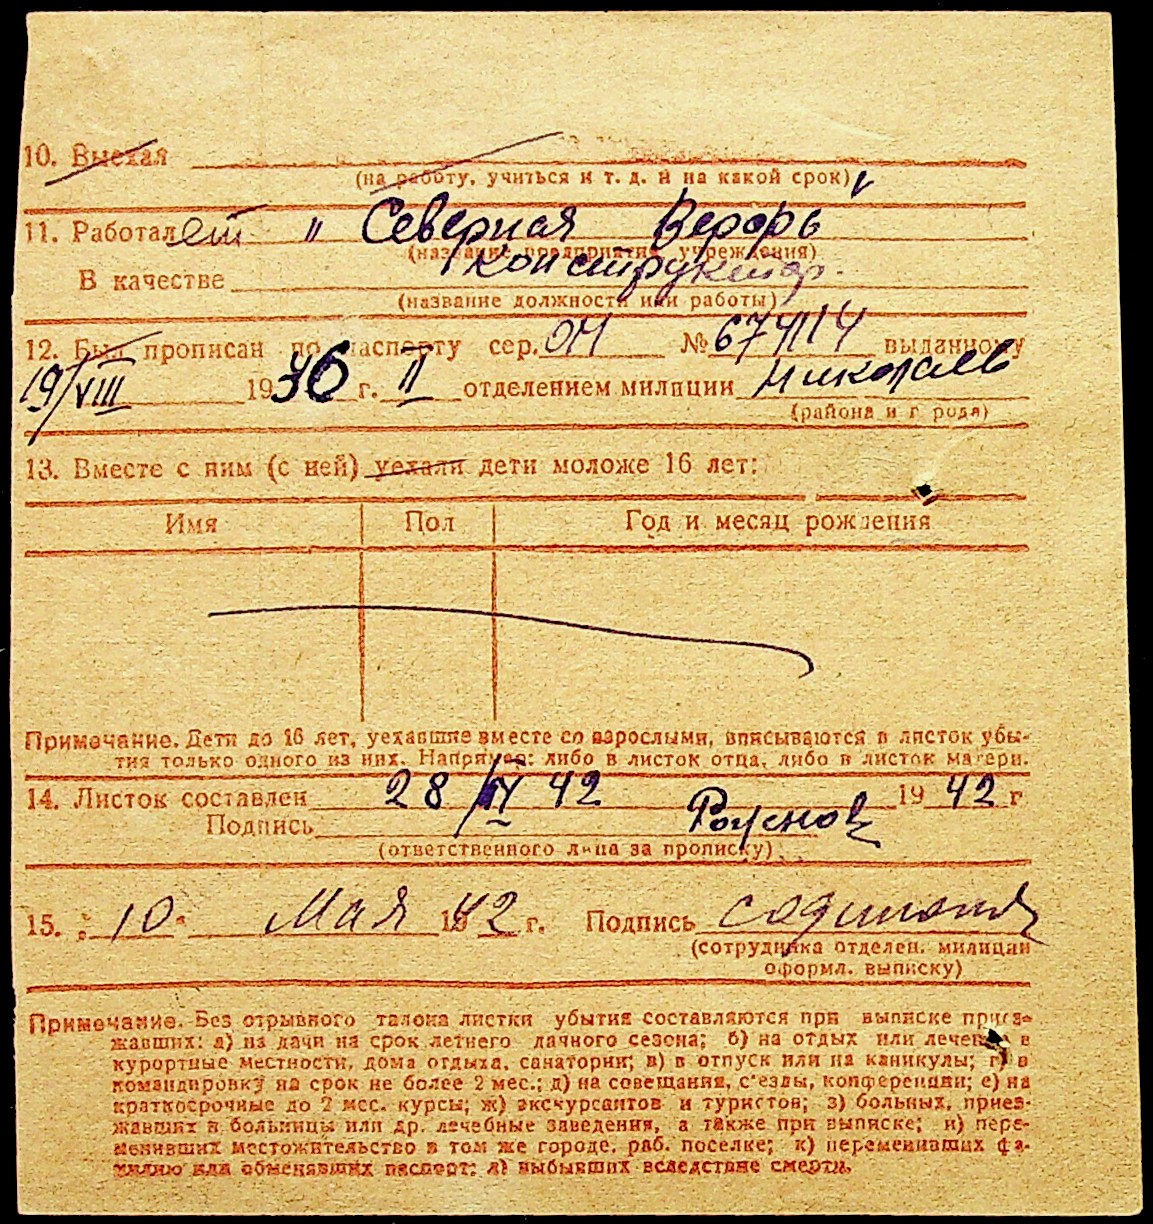 10. Выехал
(на работу, учиться и т. д. и на какой срок)
11. Работает "Северная Верфь"
(название предприятия, учреждения)
В качестве конструктор.
(название должности или работы)
12. Был прописан по паспорту сер. ОЧ № 674114 выданному
19/VIII 1936 г. II отделением милиции Николаев
(района и города)
13. Вместе с ним (с ней) уехали дети моложе 16 лет:
Имя Пол Год и месяц рождения
Примечание. Дети до 16 лет, уехавшие вместе со взрослыми, вписываются в листок убы-
тия только одного из них. Например: либо в листок отца, либо в листок матери.
14. Листок составлен 28/IV 42 1942 г
Подпись
(ответственного лица за прописку)
15. "10" Мая 1942 г. Подпись
(сотрудника отделен. милиции
оформл. выписку)
Примечание. Без отрывного талона листки убытия составляются при выписке приез-
жавших: а) на дачи на срок летнего дачного сезона; б) на отдых или лечение в
курортные местности, дома отдыха, санатории; в) в отпуск или на каникулы; г) в
командировку на срок не более 2 мес.; д) на совещания, с'езды, конференции; е) на
краткосрочные до 2 мес. курсы; ж) экскурсантов и туристов; з) больных, приез-
жавших в больницы или др. лечебные заведения, а также при выписке; и) пере-
менивших местожительство в том же городе, раб. поселке; к) переменивших фа-
милию или обменявших паспорт; л) выбывших вследствие смерти.